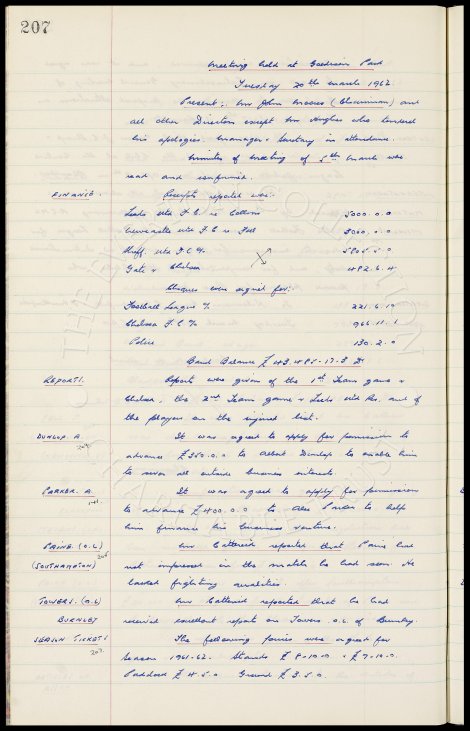 207
Meeting held at Goodison Park
Tuesday 20th March 1962.
Present:- Mr John Moores (Chairman) and
all other Directors except Mr Hughes who tendered
his apologies. Manager & Secretary in attendance.
Minutes of Meeting of 6th March were
read and confirmed.
FINANCE. Receipts reported were:-
Leeds Utd F.C. re Collins 5000.0.0
Newcastle Utd F.C. re Fell 5000.0.0
Sheff. Utd F.C. %
Gate v Chelsea 492.6.4
Cheques were signed for:-
Football League % 221.6.10
Chelsea F.C. % 966.11.1
Police 130.2.0
Bank Balance £43.495-17-3 Dr
REPORTS. Reports were given of the 1st Team game v
Chelsea, the 2nd Team game v Leeds Utd Res. and of
the players on the injured list.
DUNLOP. A. It was agreed to apply for permission to
advance £350.0.0 to Albert Dunlop to enable him
to sever all outside business interests.
PARKER. A. It was agreed to apply for permission
to advance £400.0.0 to Alex Parker to help
him finance his business venture.
PAINE. (O.L) Mr Catterick reported that Paine had
(SOUTHAMPTON) not impressed in the match he had seen. He
lacked fighting qualities.
TOWERS. (O.L) Mr Catterick reported that he had
BURNLEY received excellent reports on Towers O.L. of Burnley.
SEASON TICKETS The following prices were agreed for
Season 1961-62. Stands £8-10-0 & £7-10-0.
Paddock £4.5.0 Ground £3.5.0.